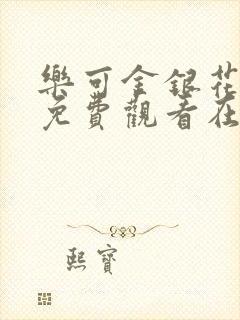 樂可金銀花
免費觀看在
熙寶